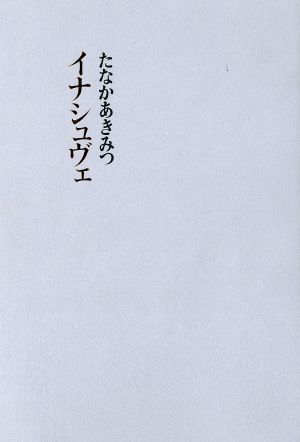 たなかあきみつ
イナシュヴェ